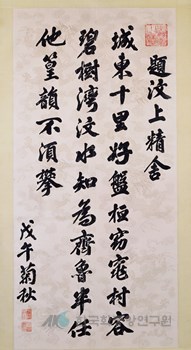 題汶上精舍
城東十里好盤桓窈窕村容
碧樹灣汶水知為齊魯半任
他篁韻不須攀
戊午菊秋
한국학중앙연구원